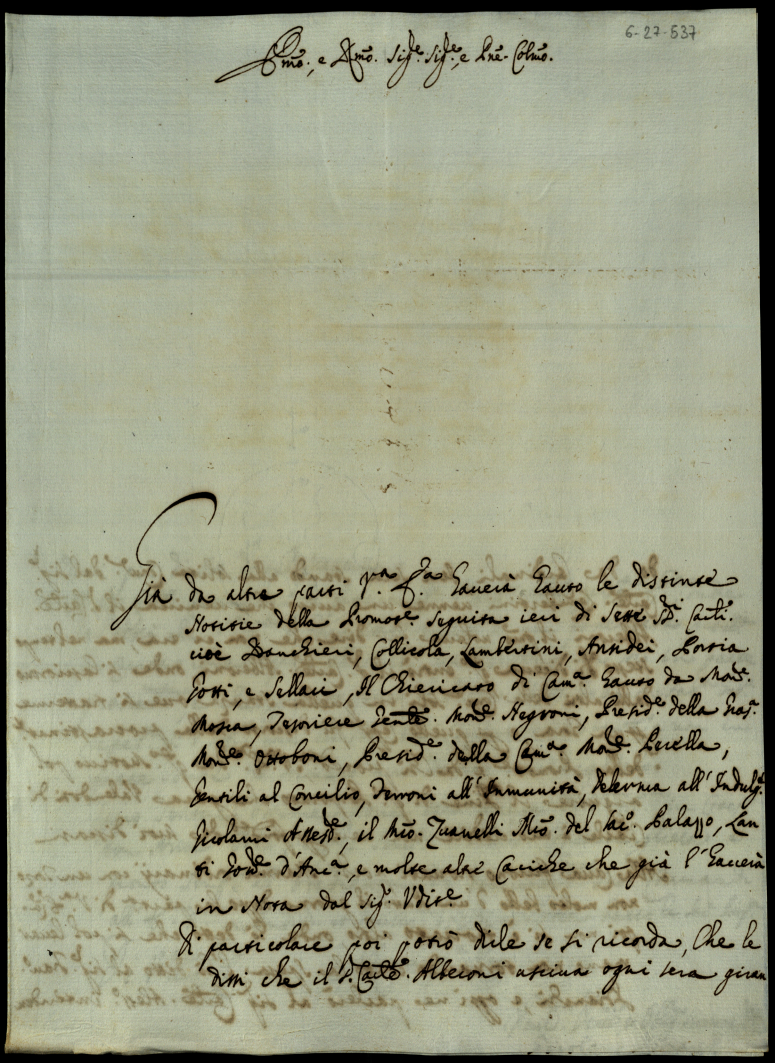 6-27-537
Emo., e Rmo. Sigr. Sigr., e Pne. Colmo.
Già da altre parti Vra. Ema. haverà hauto le distinte
Notitie della Promoz.e seguita ieri di Sette SSri. Cardli.
cioè Banchieri, Collicola, Lambertini, Ansidei, Porzia
Gotti, e Sellari, Il Chiericato di Cam.a hauto da Mons.e
Mosca, Tesoriere Gen.le Mons.e Negroni, Presid.e della Gras.a
Mons.e Ottoboni, Presid.e della Cam.a Mons.e Perella,
Gentili al Concilio, Derroni all'Immunità, all'Indulg.e
Girolami Assess.e, il Pro. Zuanelli Mro. del Sac.o Palazzo, Lan
ti Gov.e d'Anc.a, e molte altre Cariche che già l'haverà
in Nota dal Sig.r Udit.e
Di particolare poi potrò dirle se si ricorda, Che le
dissi che il S.r Cardle. Alberoni usciva ogni sera giran